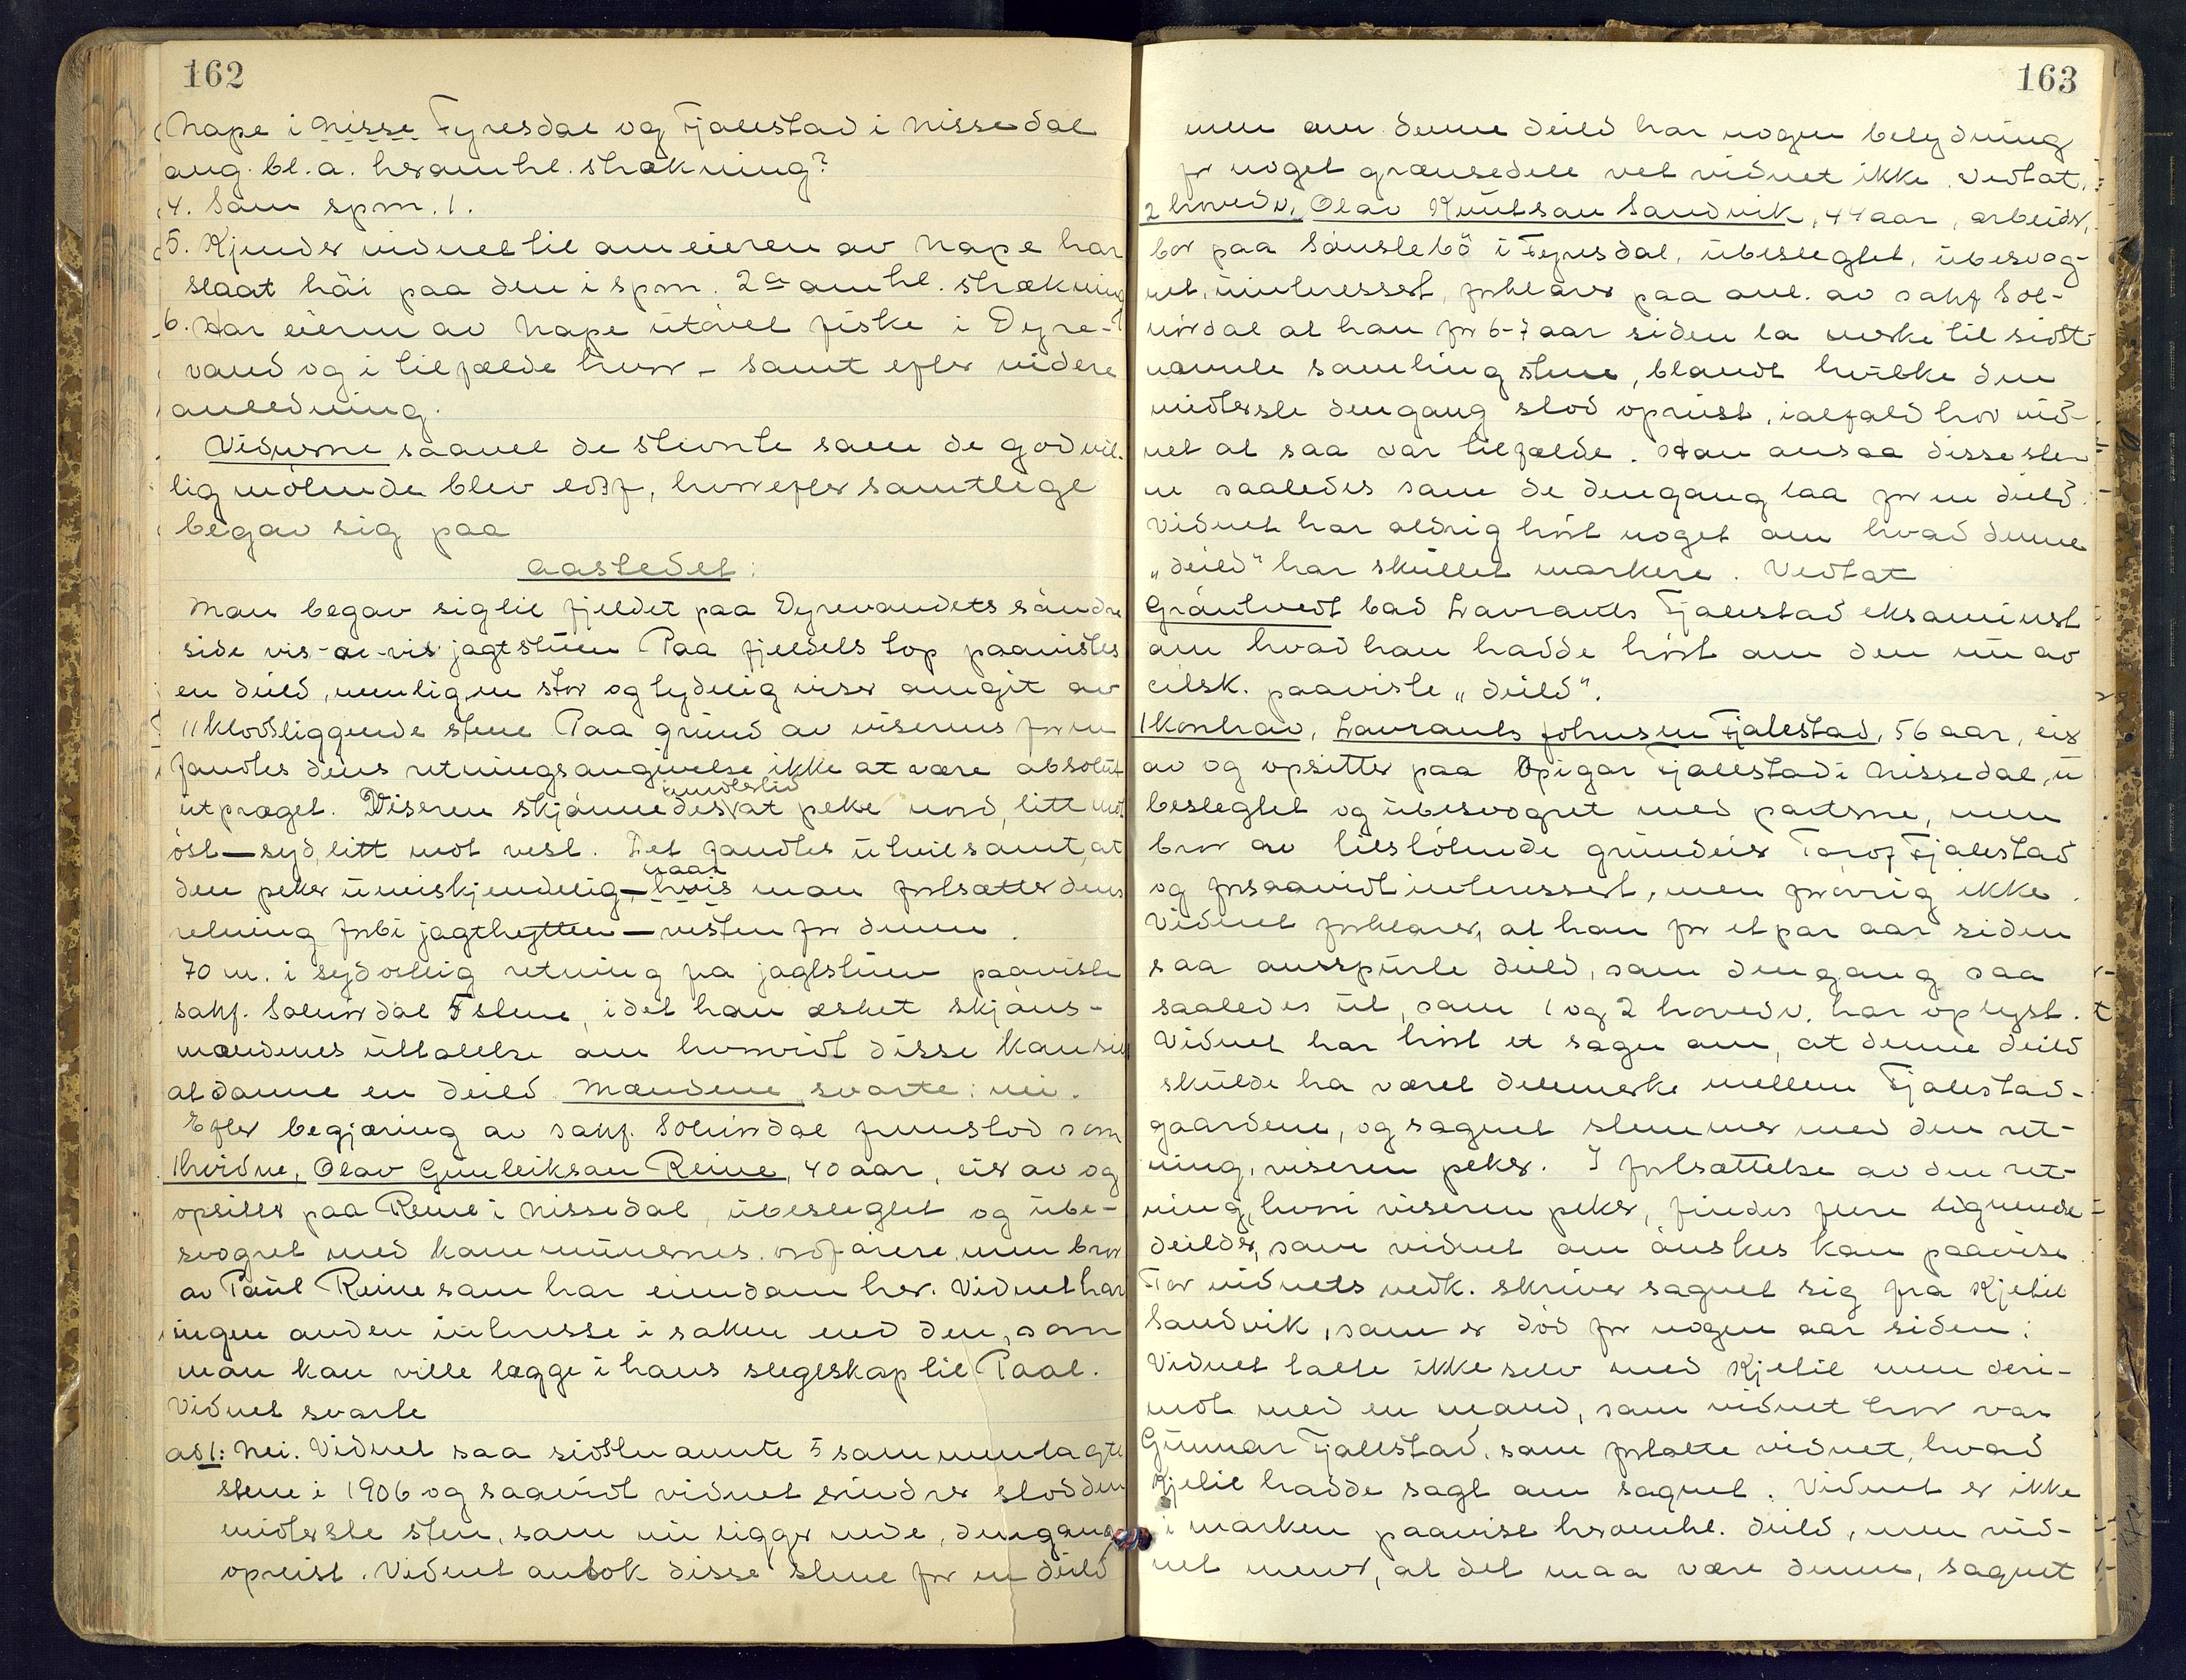 162
Nape i Nisse Fyresdal og Fjalestad i Nissedal
ang. bl. a. heromhl. strækning?
4. Som spm. 1.
5. Kjender vidnet til om eieren av Nape har
slaat höi paa den i spm. 2 a omhl. strækning
6. Har eieren av Nape utövet fiske i Dyre-
vand og i tilfælde hvor – samt efter videre
anledning.
Vidnerne saavel de stevnte som de godvil-
lig mötende blev edsf, hvorefter samtlige
begav sig paa
aastedet:
Man begav sig til fjeldet paa Dyrevandets söndre
side vis-a-vis jagtstuen Paa fjeldets top paavistes
en deild, nemlig en stor og tydelig viser omgit av
11 klodsliggende stene Paa grund av viserens form
fandtes dens retningsangivelse ikke at være absolut
utpræget. Viseren skjönnedes imidlertid at peke nord, litt mot
öst – syd, litt mot vest. Det fandtes utvilsomt, at
den peker umiskjendelig – hvis naar man fortsætter dens
retning forbi jagthytten – vesten for denne.
70 m. i sydvestlig retning fra jagtstuen paaviste
sakf. Solnördal 5 stene, idet han æsket skjöns-
mændenes uttalelse om hvorvidt disse kan sies
at danne en deild. Mændene svarte: nei.
Efter begjæring av sakf. Solnördal fremstod som
1 hvidne, Olav Gunleiksan Reine, 40 aar, eier av og
opsitter paa Reine i Nissedal, ubeslegtet og ube-
svogret med kommunernes ordförere, men bror
av Paul Reine som har eiendom her. Vidnet har
ingen anden interesse i saken end den, som
man kan ville lægge i hans slegtskap til Paal.
Vidnet svarte
ad 1: Nei. Vidnet saa sidstnævnte 5 sammenlagte
stene i 1906 og saavidt vidnet erindrer stod den
midterste sten, som nu ligger nede, dengang
opreist. Vidnet antok disse stene for en deild
163
men om denne deild har nogen betydning
for noget grænsedele vet vidnet ikke. Vedtat.
2 hovedv. Olav Knutsan Sandvik, 44 aar, arbeider,
bor paa Sönstebö i Fyresdal, ubeslegtet, ubesvog-
ret, uinteressert, forklarer paa anl. av sakf Sol-
nördal at han for 6-7 aar siden la merke til sidst-
nævnte samling stene, blandt hvilke den
midterste dengang stod opreist, ialfald tror vid-
net at saa var tilfælde. Han ansaa disse ste-
ne saaledes som de dengang laa for en deild.
Vidnet har aldrig hört noget om hvad denne
„deild" har skullet markere. Vedtat
Gröntvedt bad Lavrants Fjalestad eksaminert
om hvad han hadde hört om den nu av
citsk. paaviste „deild".
1 kontrav, Lavrants Johnsen Fjalestad, 56 aar, eier
av og opsitter paa Opigar Fjalestad i Nissedal, u
beslegtet og ubesvogret med parterne, men
bror av tilstötende grundeier Torof Fjalestad
og forsaavidt interessert, men forövrig ikke.
Vidnet forklarer, at han for et par aar siden
saa omspurte deild, som dengang saa
saaledes ut, som 1 og 2 hovedv. har oplyst.
Vidnet har hört et sagn om, at denne deild
skulde ha været delemerke mellem Fjalestad-
gaardene, og sagnet stemmer med den ret-
ning, viseren peker. I fortsættelse av den ret-
ning, hvori viseren peker, findes flere lignende
deilder, som vidnet om önskes kan paavise.
For vidnets vedk. skriver sagnet sig fra Kjetil
Sandvik, som er död for nogen aar siden.
Vidnet talte ikke selv med Kjetil men deri-
mot med en mand, som vidnet tror var
Gunnar Fjalestad, som fortalte vidnet, hvad
Kjetil hadde sagt om sagnet. Vidnet er ikke
i marken paavist heromhl. deild, men vid-
net mener, at det maa være denne, sagnet